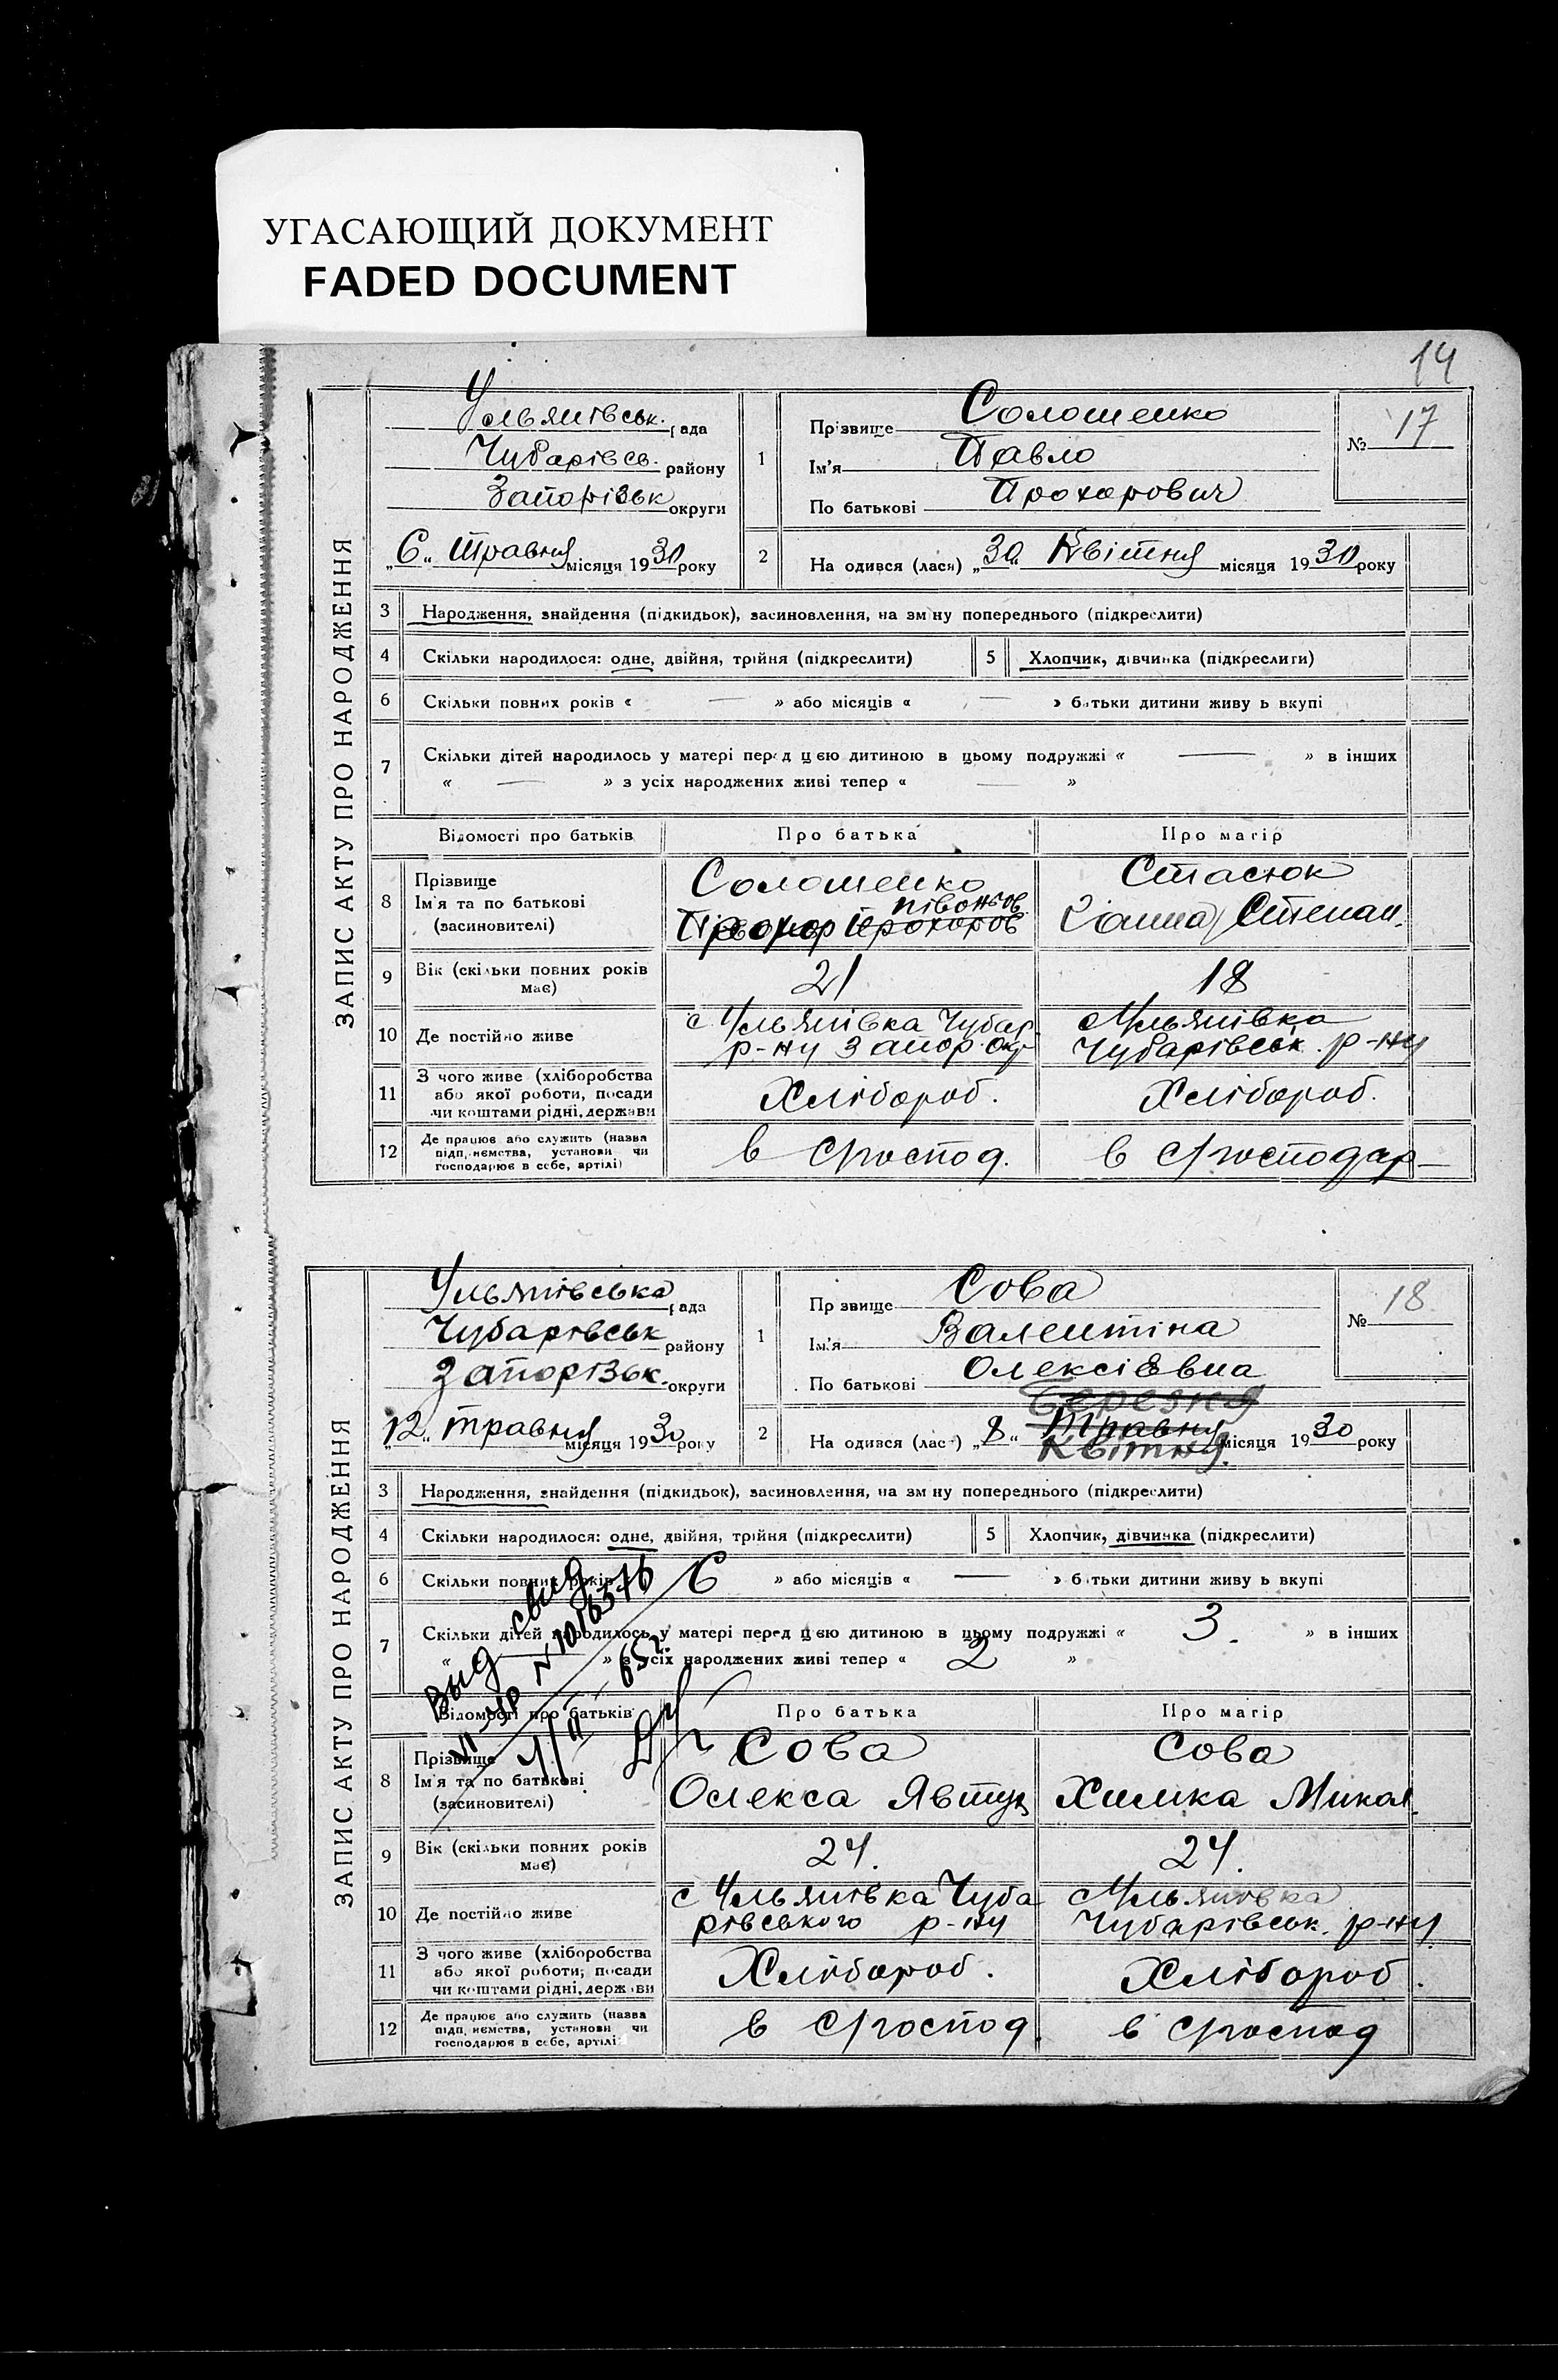 УГАСАЮЩИЙ ДОКУМЕНТ
FADED DOCUMENT
14
ЗАПИС АКТУ ПРО НАРОДЖЕННЯ
Ульянівськ. рада
Чубарівсь. району
Запорізьк округи
„6“ травня місяця 1930 року
1
Прізвище Солошенко
Ім'я Павло
По батькові Прохорович
№ 17
2 На одився (лася) „30“ Квітня місяця 1930 року
3 Народження, знайдення (підкидьок), засиновлення, на зм ну попереднього (підкреслити)
4 Скільки народилося: одне, двійня, трійня (підкреслити) 5 Хлопчик, дівчинка (підкреслити)
6 Скільки повних років « — » або місяців « — » батьки дитини живу ь вкупі
7 Скільки дітей народилось у матері перед цією дитиною в цьому подружжі « — » в інших
« — » з усіх народжених живі тепер « — »
Відомості про батьків Про батька Про матір
8 Прізвище
Ім'я та по батькові
(засновителі)
Солошенко
Прохор Прохоров
Стасюк
Ганна Степан.
9 Вік (скільки повних років
має)
21 18
10 Де постійно живе
с Ульянівка Чубар.
р-ну Запор. окр
с Ульянівка
Чубарівськ. р-ну
11 З чого живе (хліборобства
або якої роботи, посади
чи коштами рідні, держави
Хлібороб. Хлібороб.
12 Де працює або служить (назва
підп, иємства, установи чи
господарює в себе, артілі)
в с/господ. в с/господар—
ЗАПИС АКТУ ПРО НАРОДЖЕННЯ
Ульянівська рада
Чубарівськ району
Запорізьк. округи
„12“ травня місяця 1930 року
1
Пр звище Сова
Ім'я Валентіна
По батькові Олексіївна
№ 18
Березня
2 На одився (лася) „8“ Травня місяця 1930 року
Квітня.
3 Народження, знайдення (підкидьок), засиновлення, на зм ну попереднього (підкреслити)
4 Скільки народилося: одне, двійня, трійня (підкреслити) 5 Хлопчик, дівчинка (підкреслити)
6 Скільки повних років 6 » або місяців « — » батьки дитини живу ь вкупі
7 Скільки дітей народилось у матері перед цією дитиною в цьому подружжі « 3. » в інших
« » з усіх народжених живі тепер « 2 »
Выд свид
Відомості про батьків Про батька Про матір
8 Прізвище
Ім'я та по батькові
(засиновителі)
Сова
Олекса Явтух
Сова
Химка Микол
9 Вік (скільки повних років
має)
24. 24.
10 Де постійно живе
с Ульянівка Чуба
рівського р-ну
с Ульянівка
Чубарівськ. р-ну
11 З чого живе (хліборобства
або якої роботи, посади
чи коштами рідні, держави
Хлібороб. Хлібороб.
12 Де працює або служить (назва
підп, иємства, установи чи
господарює в себе, артілі
в с/господ. в с/господ